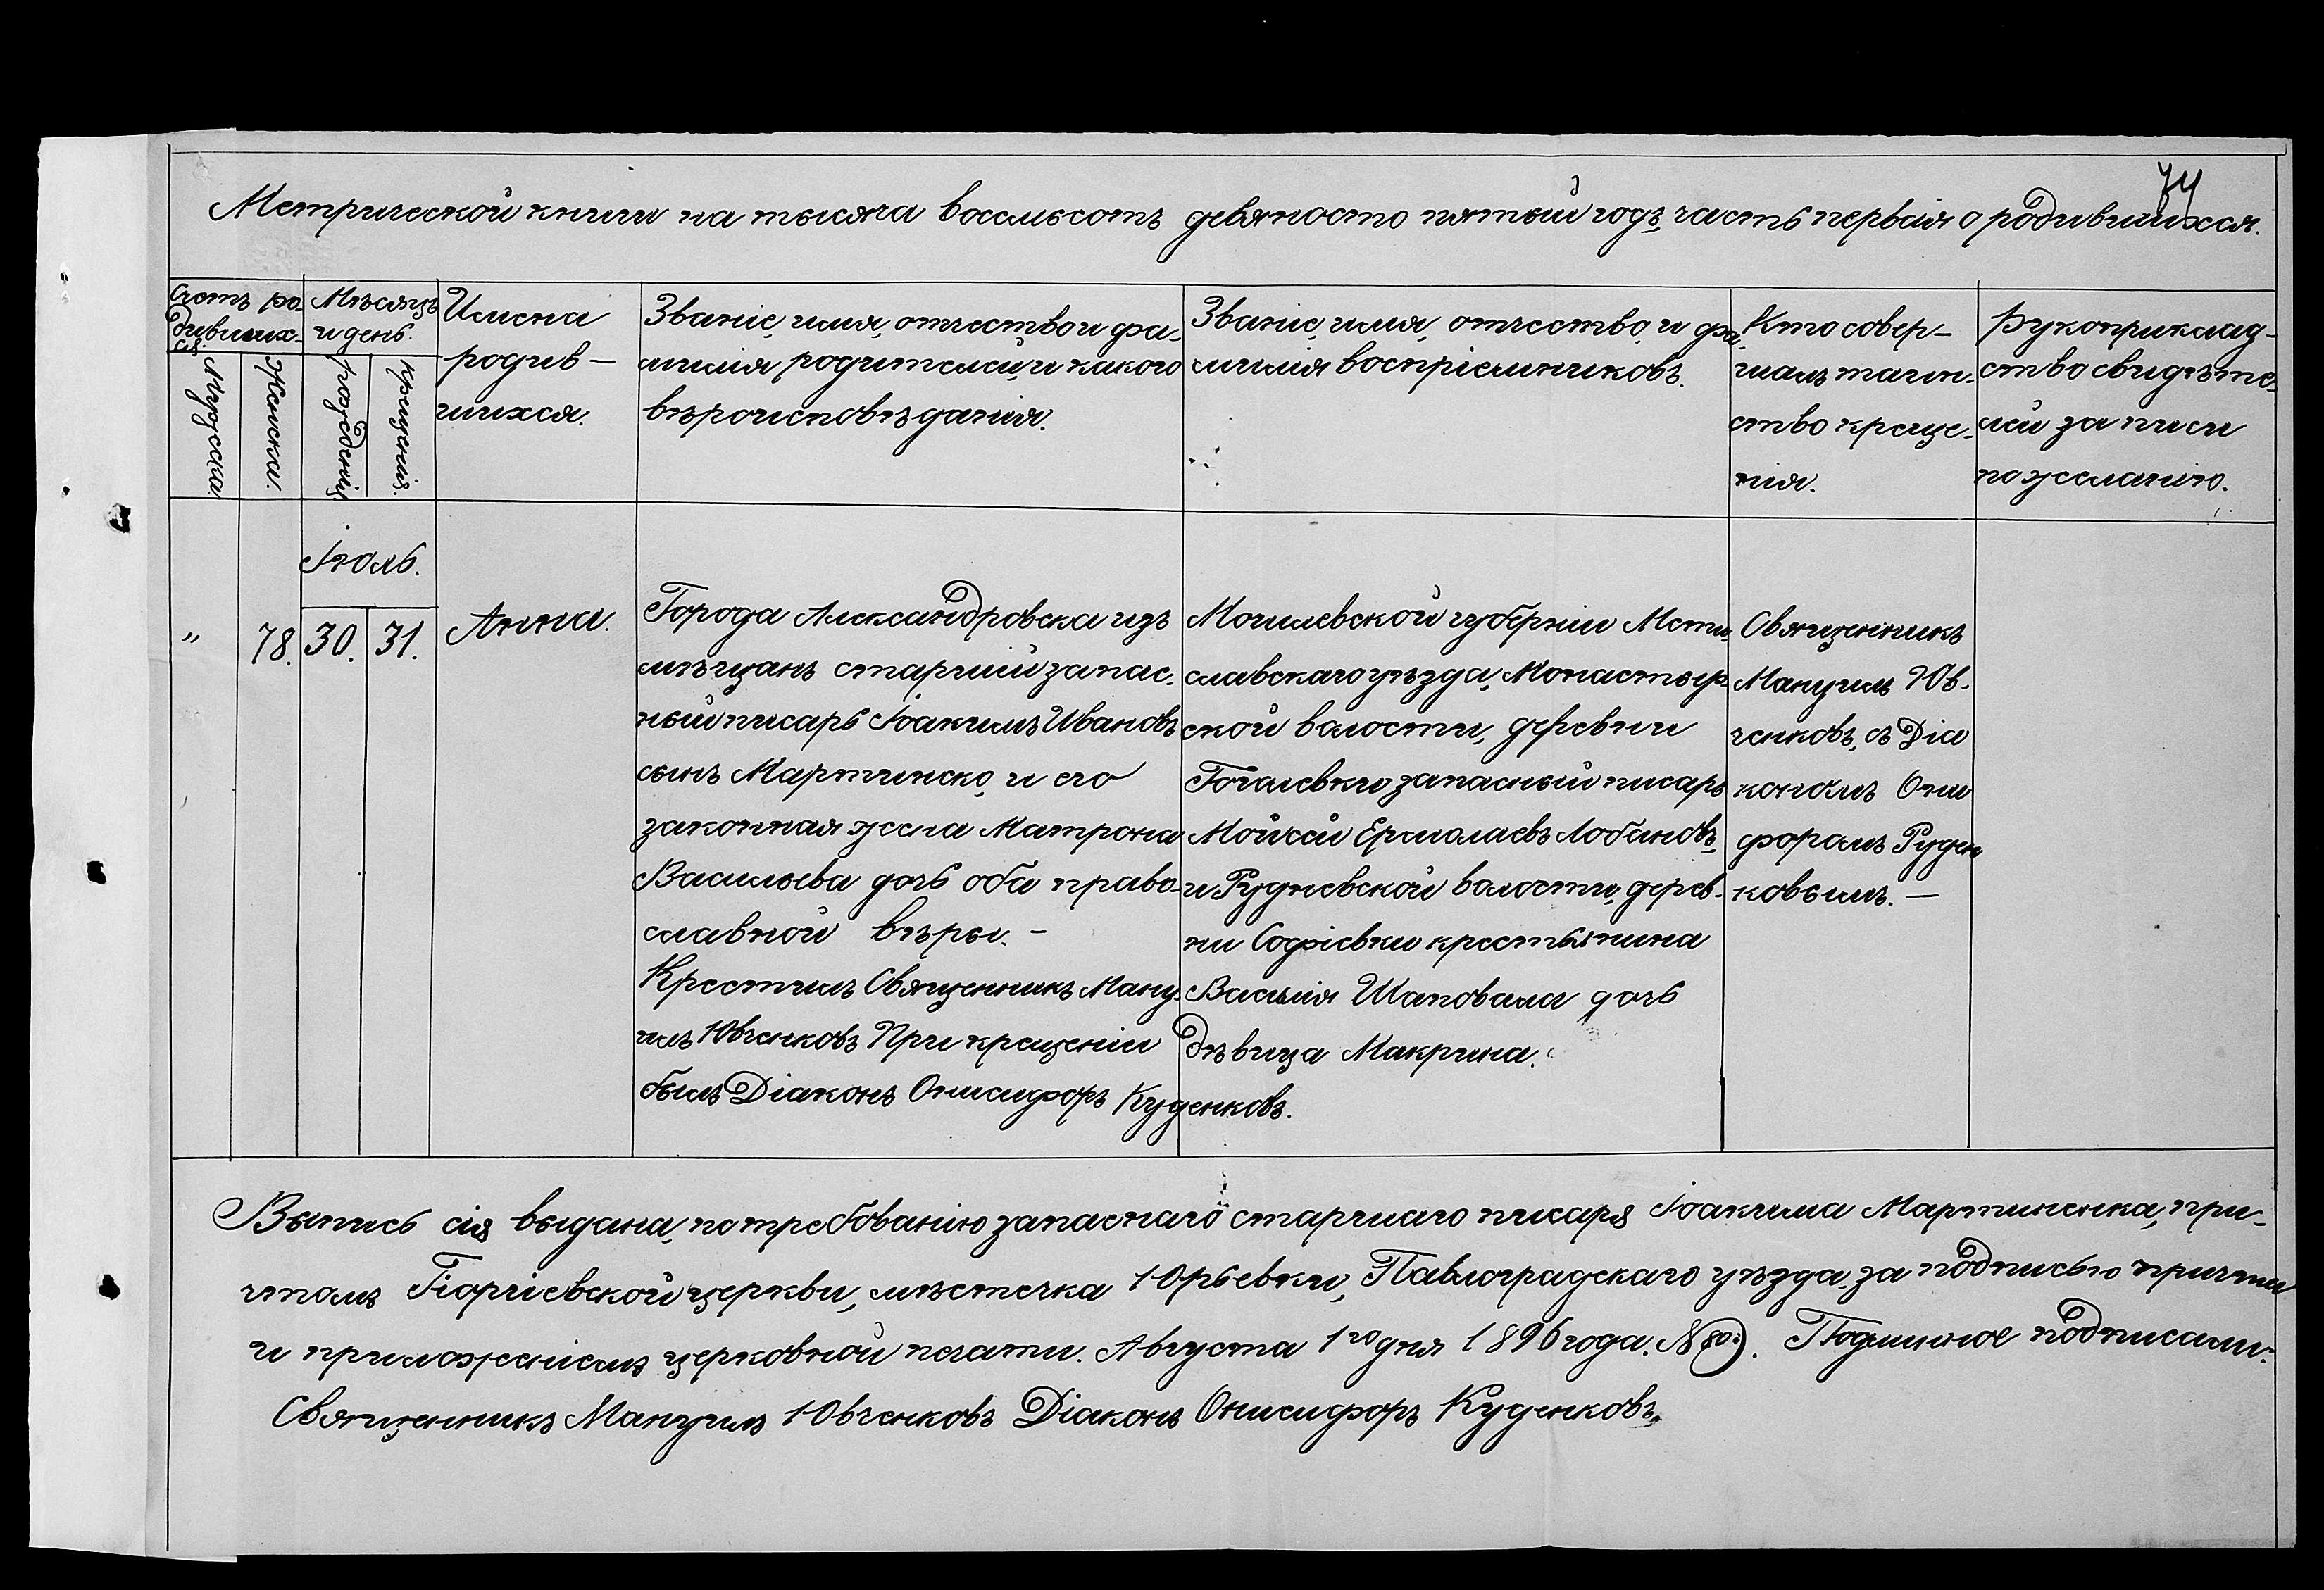 74
Метрической книги на тысяча восемьсотъ девяносто пятый годъ, часть первая о родившихся.
Счетъ ро-
дивших-
ся.
Мужеска.
Женска.
Мѣсяцъ
и день.
рожденія
крещенія.
Имена
родив-
шихся.
Званіе, имя, отчество и фа-
милія родителей, и какого
вѣроисповѣданія.
Званіе, имя, отчество, и фа-
милія воспріемниковъ.
Кто совер-
шалъ таин-
ство креще-
нія.
Рукоприклад-
ство свидѣте-
лей записи
по желанію.
Іюль.
" 78. 30. 31.
Анна.
Города Александровска изъ
мѣщанъ старшій запас-
ный писарь Іоакимъ Ивановъ
сынъ Мартиненко, и его
законная жена Матрона
Васильева дочь оба право-
славной вѣры. –
Крестилъ Священникъ Ману-
илъ Ювченковъ При крещеніи
былъ Діаконъ Онисифоръ Куденковъ.
Могилевской губерніи Мсти-
славскаго уѣзда, Монастыр-
ской волости, деревни
Гоголевки запасный писарь
Мойсей Ермолаевъ Лобановъ,
и Рудневской волости, дерев-
ни Софіевки крестьянина
Василія Шаповала дочь
дѣвица Макрина.
Священникъ
Мануилъ Юв-
ченковъ, съ Діа
кономъ Они
форомъ Руден
ковымъ. –
Выпись сія выдана, по требованію запаснаго старшаго писаря Іоакима Мартиненка, при-
чтомъ Гіоргіевской церкви, мѣстечка Юрьевки, Павлоградскаго уѣзда, за подписью причта
и приложеніемъ церковной печати. Августа 1го дня 1896 года. № 80. Подлинное подписали:
Священникъ Мануилъ Ювченковъ Діаконъ Онисифоръ Куденковъ.